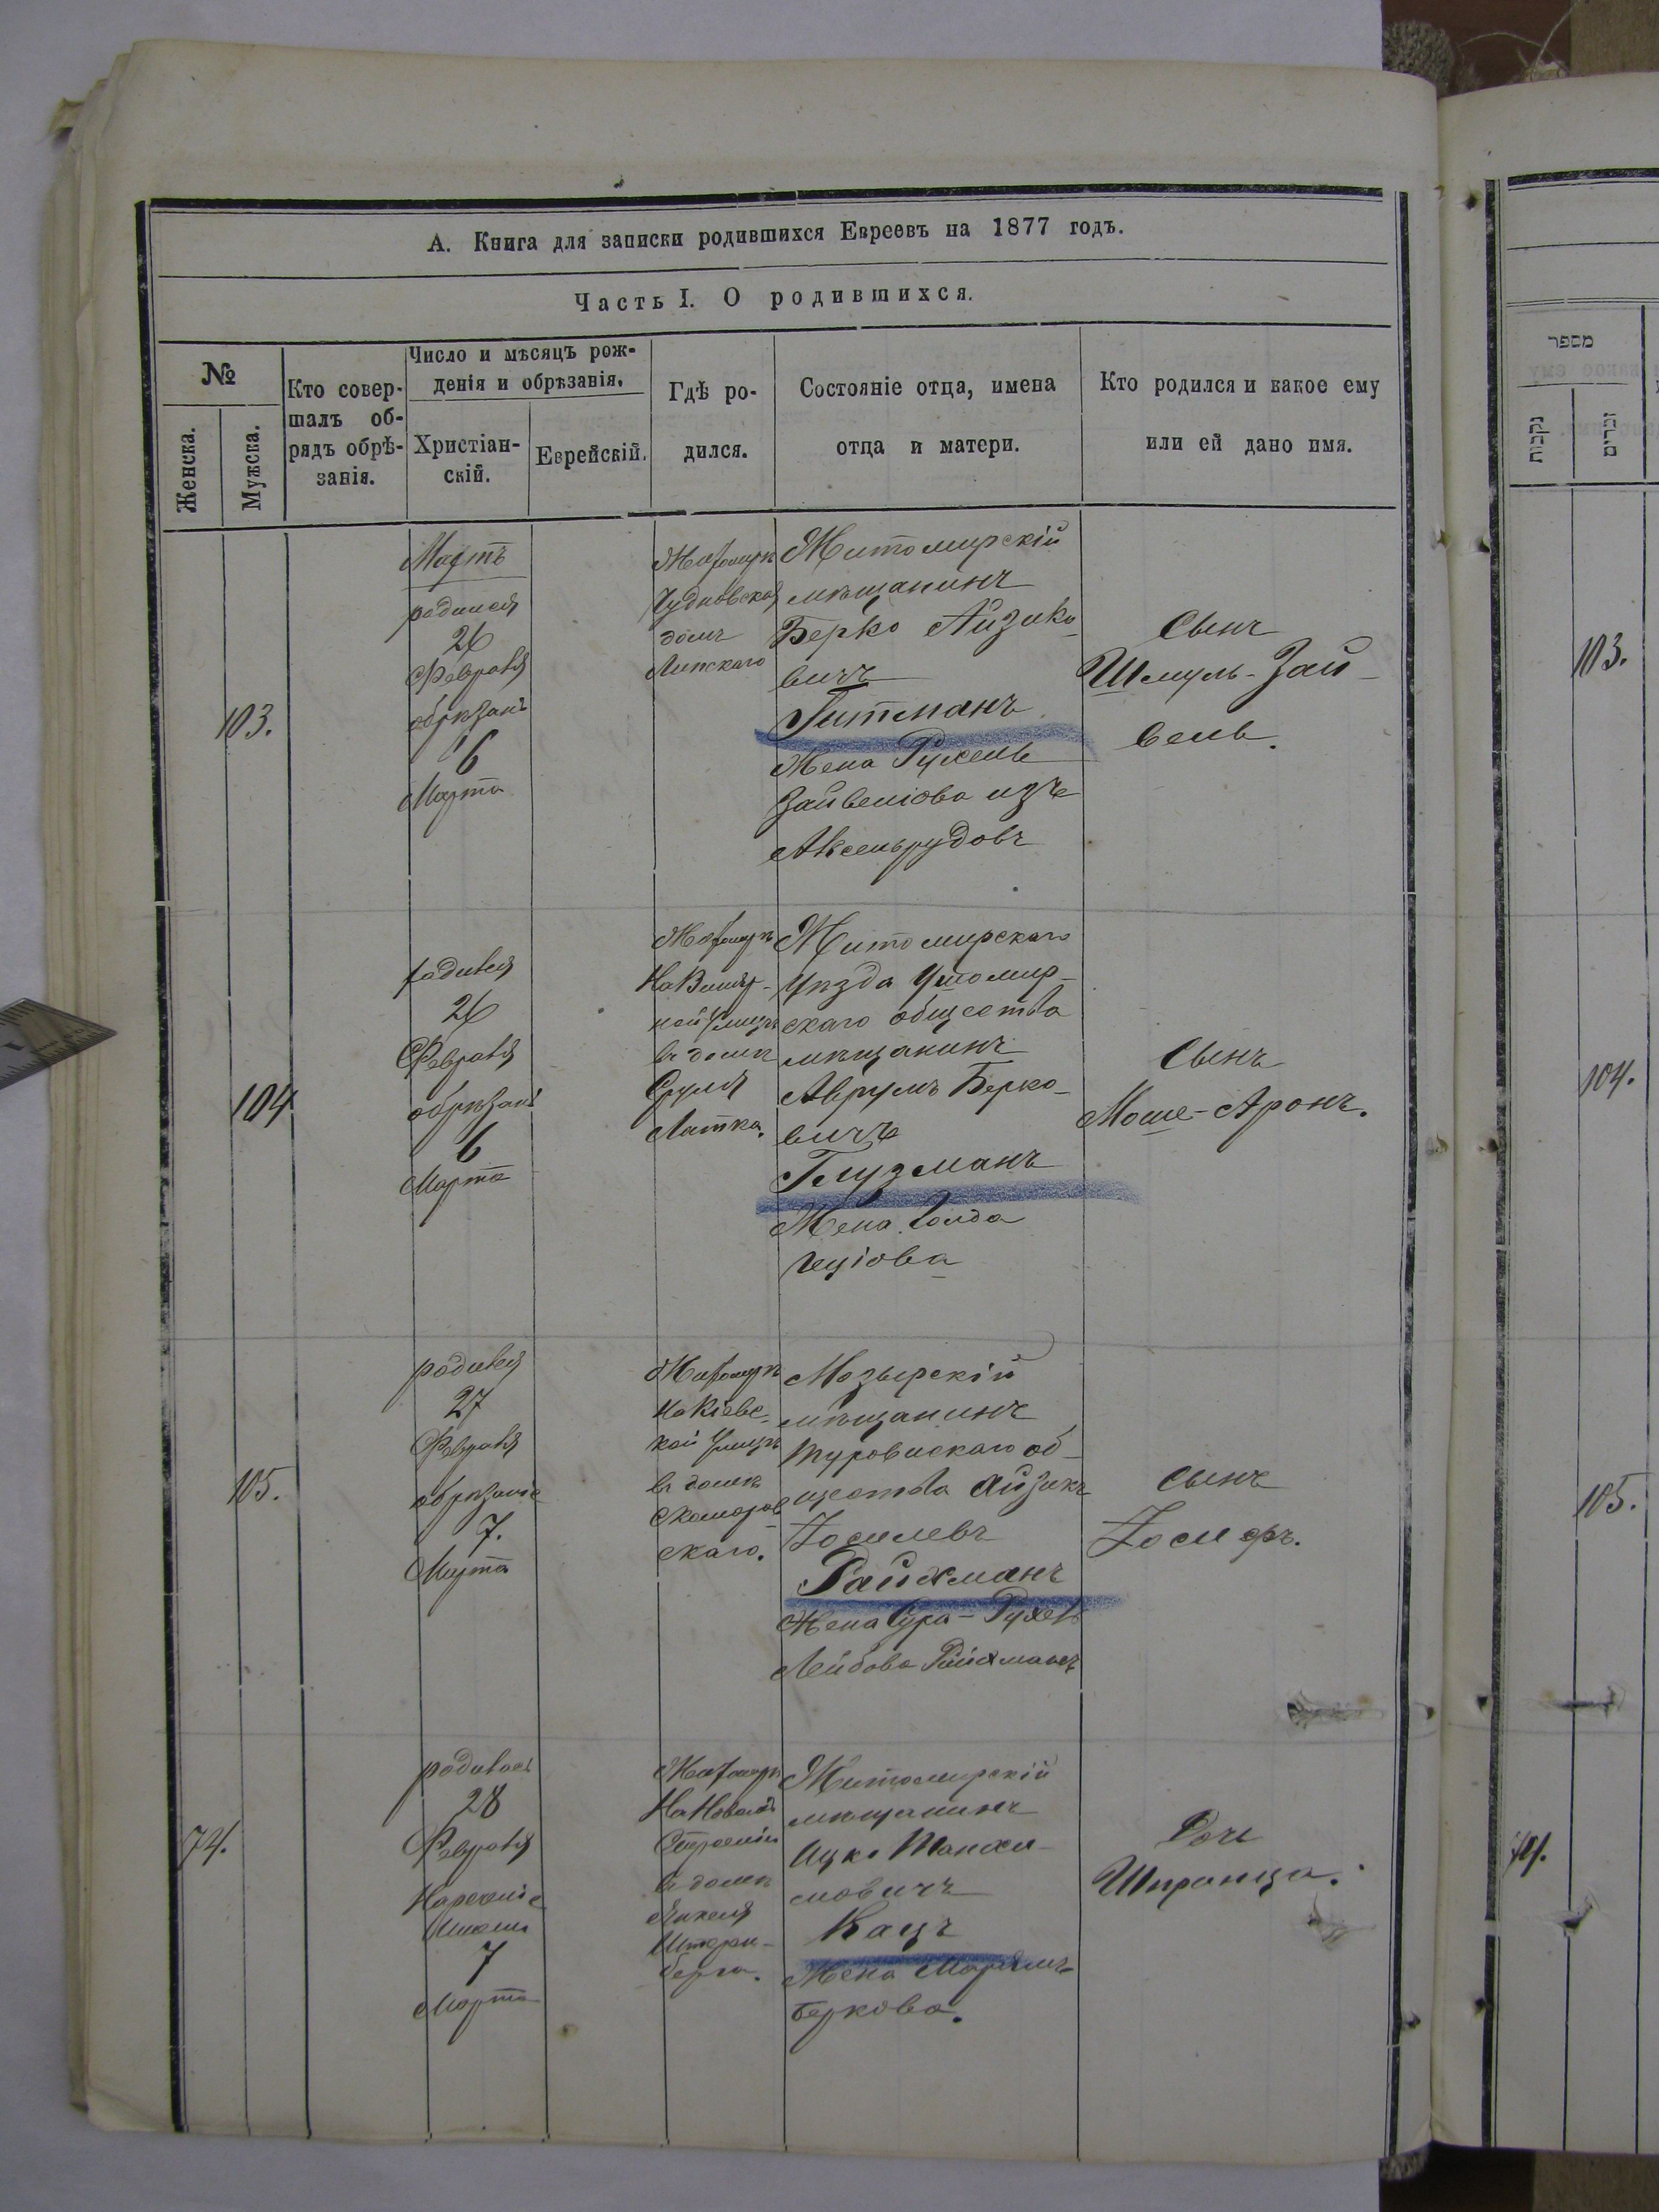 А. Книга для записки родившихся Евреевъ на 1877 годъ.
Часть I. О родившихся.
№
Женска.
Мужска.
Кто совер-
шалъ об-
рядъ обрѣ-
занія.
Число и мѣсяцъ рож-
денія и обрѣзанія.
Христіан-
скій.
Еврейскій.
Гдѣ ро-
дился.
Состояніе отца, имена
отца и матери.
Кто родился и какое ему
или ей дано имя.
103.
Мартъ
родился
26
Февраля
обрѣзанъ
6
Марта
Житомиръ
Чудновская
домъ
Липскаго
Житомирскій
мѣщанинъ
Берко Айзико-
вичъ
Гитманъ
Жена Рухель
Зайвелiова изъ
Аксельрудовъ
Сынъ
Шмуль-Зай-
вель.
104
родився
26
Февраля
обрѣзанъ
6
Марта
Житомиръ
На
ной улицѣ
въ домѣ
Сруля
Латка.
Житомирскаго
уѣзда Ушомир-
скаго общества
мѣщанинъ
Аврумъ Берко-
вичъ
Глузманъ
Жена Голда
Сынъ
Моше-Аронъ.
105.
родився
27
Февраля
обрѣзаніе
7.
Марта
Житомиръ
На Кіевс-
кой улицѣ
въ домѣ
Скоморов-
скаго.
Мозырскій
мѣщанинъ
Туровискаго об-
щества Айзикъ
Іоселевъ
Райхманъ
Жена Сура-Рухель
Лейбова Райхманъ
сынъ
Іосифъ.
74.
родилась
28
Февраля
Нареченіе
Имени
7
Марта
Житомиръ
На Новомъ
Строеніи
въ домѣ
Янкеля
Штерен-
берга.
Житомирскій
мѣщанинъ
Ицко Танхи-
мовичъ
Кацъ
Жена Марьямъ
Беркова.
Дочь
Шпранца.
מספר
נקבות
זכרים
103.
104.
105.
74.